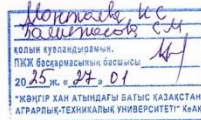 Монтаева Н С
Залимжанова С М
қолын куәландырамын.
ПЖЖ басқармасының басшысы
20 25 ж. « 27 » 01
"ЖӘҢГІР ХАН АТЫНДАҒЫ БАТЫС ҚАЗАҚСТАН
АГРАРЛЫҚ-ТЕХНИКАЛЫҚ УНИВЕРСИТЕТІ" КеАҚ